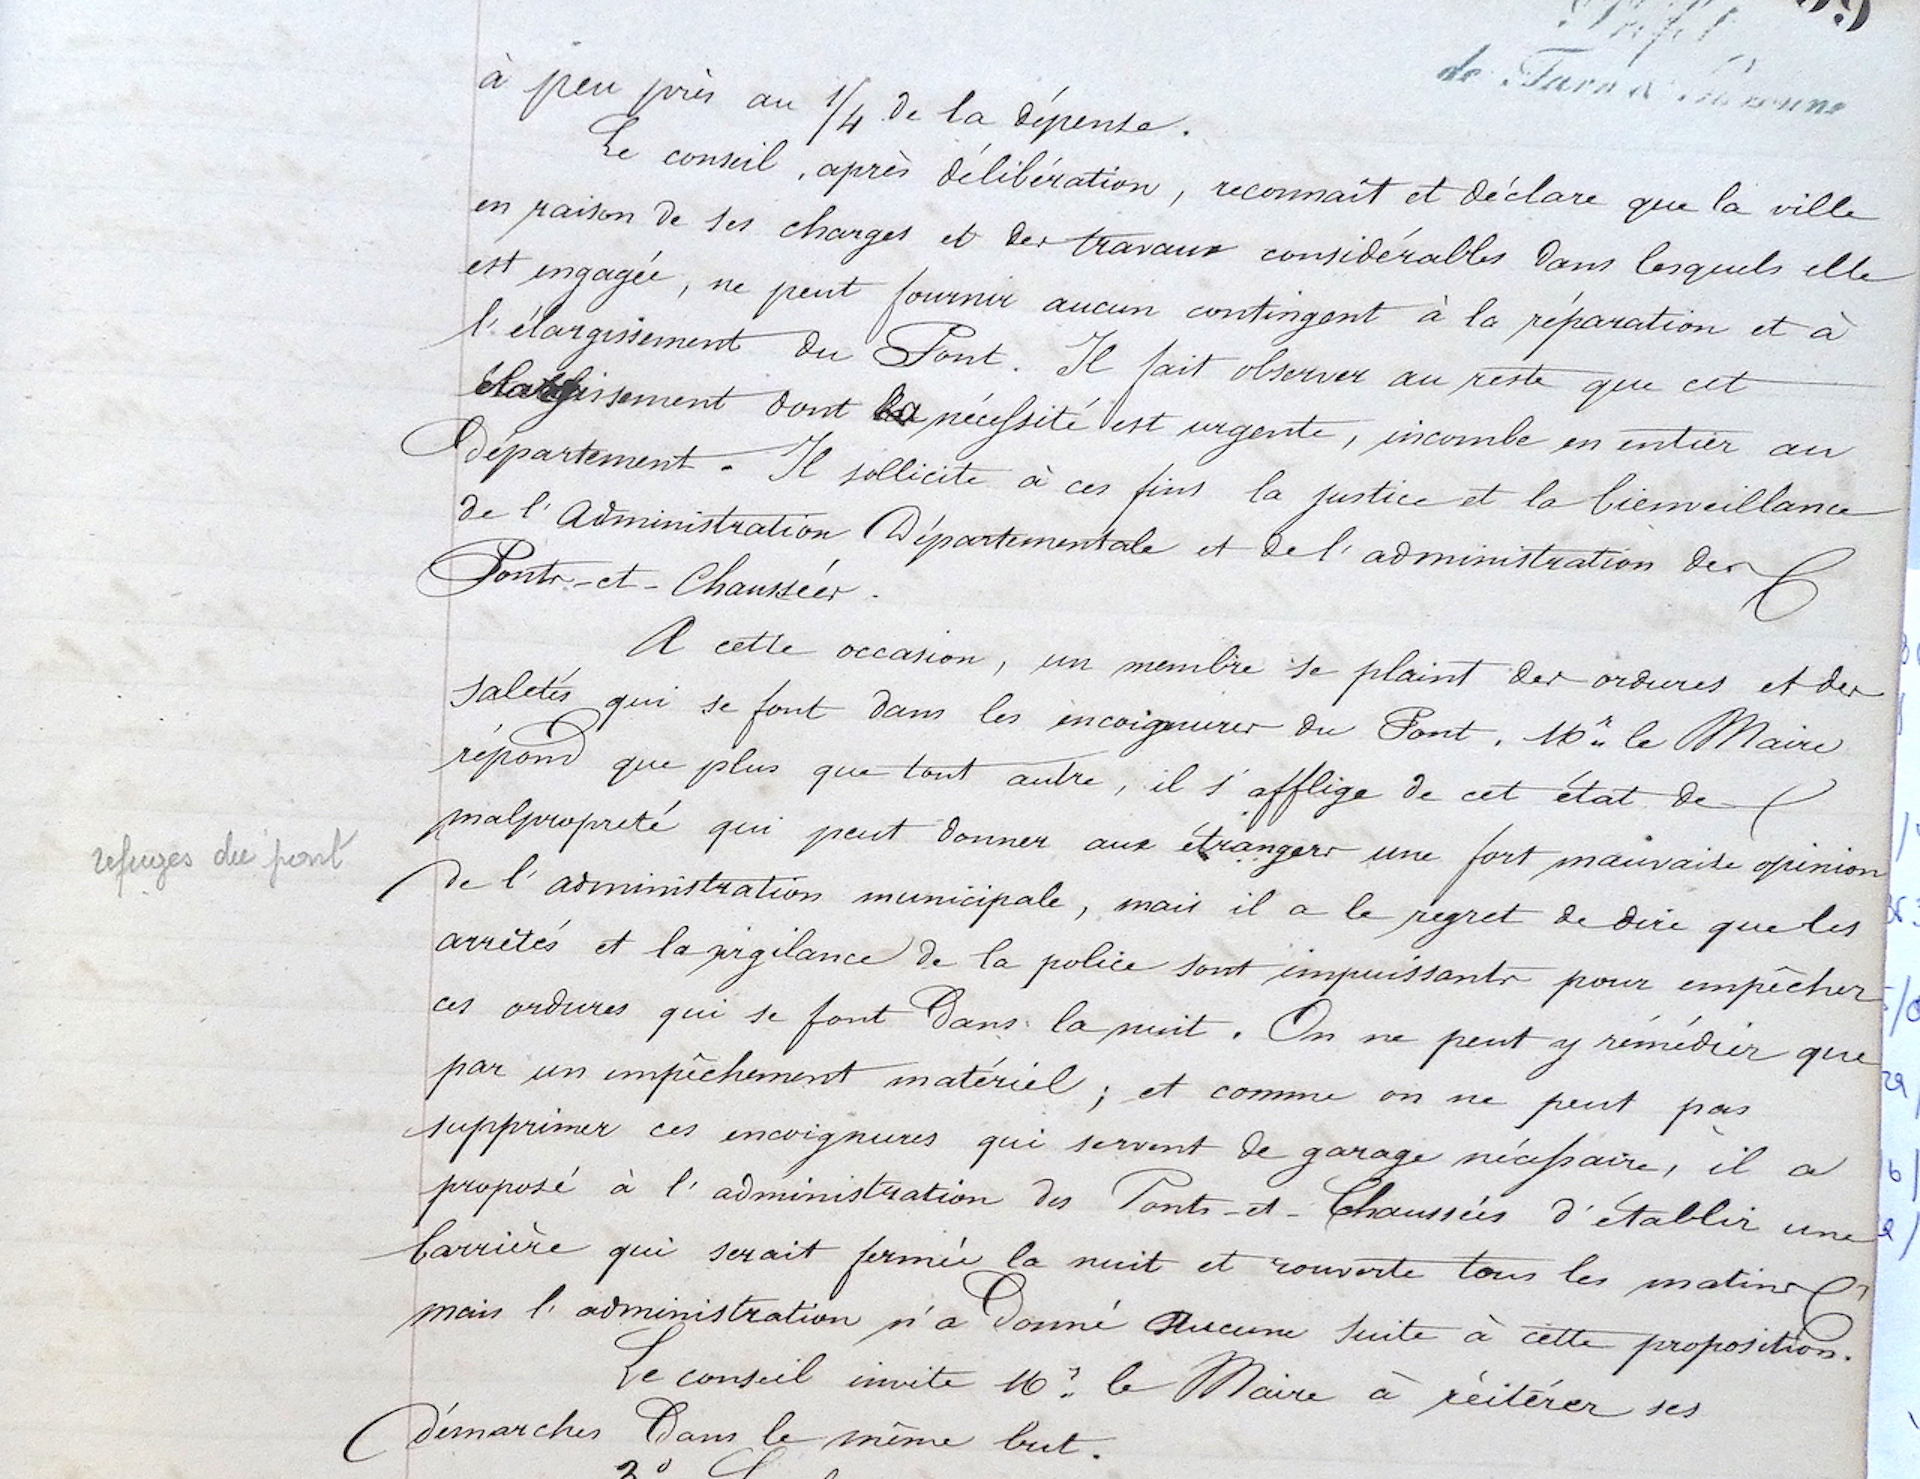 99
de Tarn & Garonne
à peu près au 1/4 de la dépense.
Le conseil, après délibération, reconnaît et déclare que la ville
en raison de ses charges et des travaux considérables dans lesquels elle
est engagée, ne peut fournir aucun contingent à la réparation et à
l'élargissement du Pont. Il fait observer au reste que cet
élargissement dont la nécessité est urgente, incombe en entier au
Département. Il sollicite à ces fins la justice et la bienveillance
de l'Administration Départementale et de l'administration des
Ponts-et-Chaussées.
A cette occasion, un membre se plaint des ordures et des
saletés qui se font dans les encoignures du Pont. Mr. le Maire
répond que plus que tout autre, il s'afflige de cet état de
malpropreté qui peut donner aux étrangers une fort mauvaise opinion
refuges du pont
de l'administration municipale, mais il a le regret de dire que les
arrêtés et la vigilance de la police sont impuissants pour empêcher
ces ordures qui se font dans la nuit. On ne peut y rémédier que
par un empêchement matériel; et comme on ne peut pas
supprimer ces encoignures qui servent de garage nécessaire, il a
proposé à l'administration des Ponts-et-Chaussées d'établir une
barrière qui serait fermée la nuit et rouverte tous les matins
mais l'administration n'a donné aucune suite à cette proposition.
Le conseil invite Mr. le Maire à réitérer ses
démarches dans le même but.